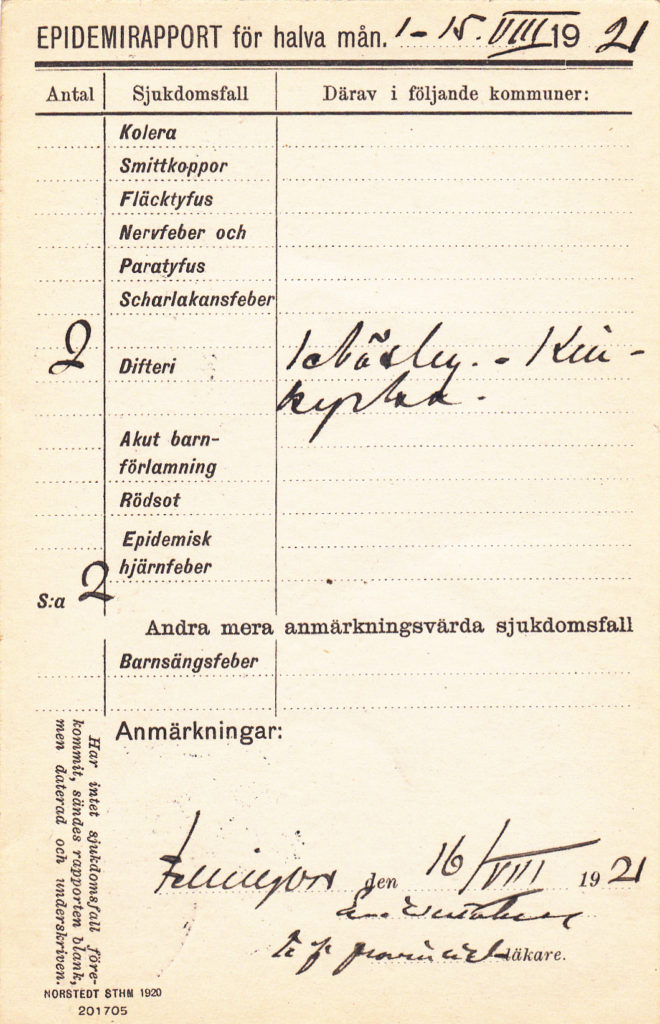 EPIDEMIRAPPORT för halva mån. 1-15. VIII 1921
Antal Sjukdomsfall Därav i följande kommuner:
Kolera
Smittkoppor
Fläcktyfus
Nervfeber och
Paratyfus
Scharlakansfeber
2 Difteri
Akut barn-
förlamning
Rödsot
Epidemisk
hjärnfeber
S:a 2
Andra mera anmärkningsvärda sjukdomsfall
Barnsängsfeber
Anmärkningar:
Har intet sjukdomsfall före-
kommit, sändes rapporten blank,
men daterad och underskriven.
den 16/VIII 1921
t f provinciel läkare.
NORSTEDT STHM 1920
201705